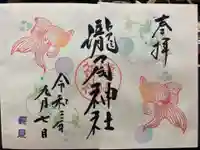 奉拝
瀧尾神社
令和三年
九月七日